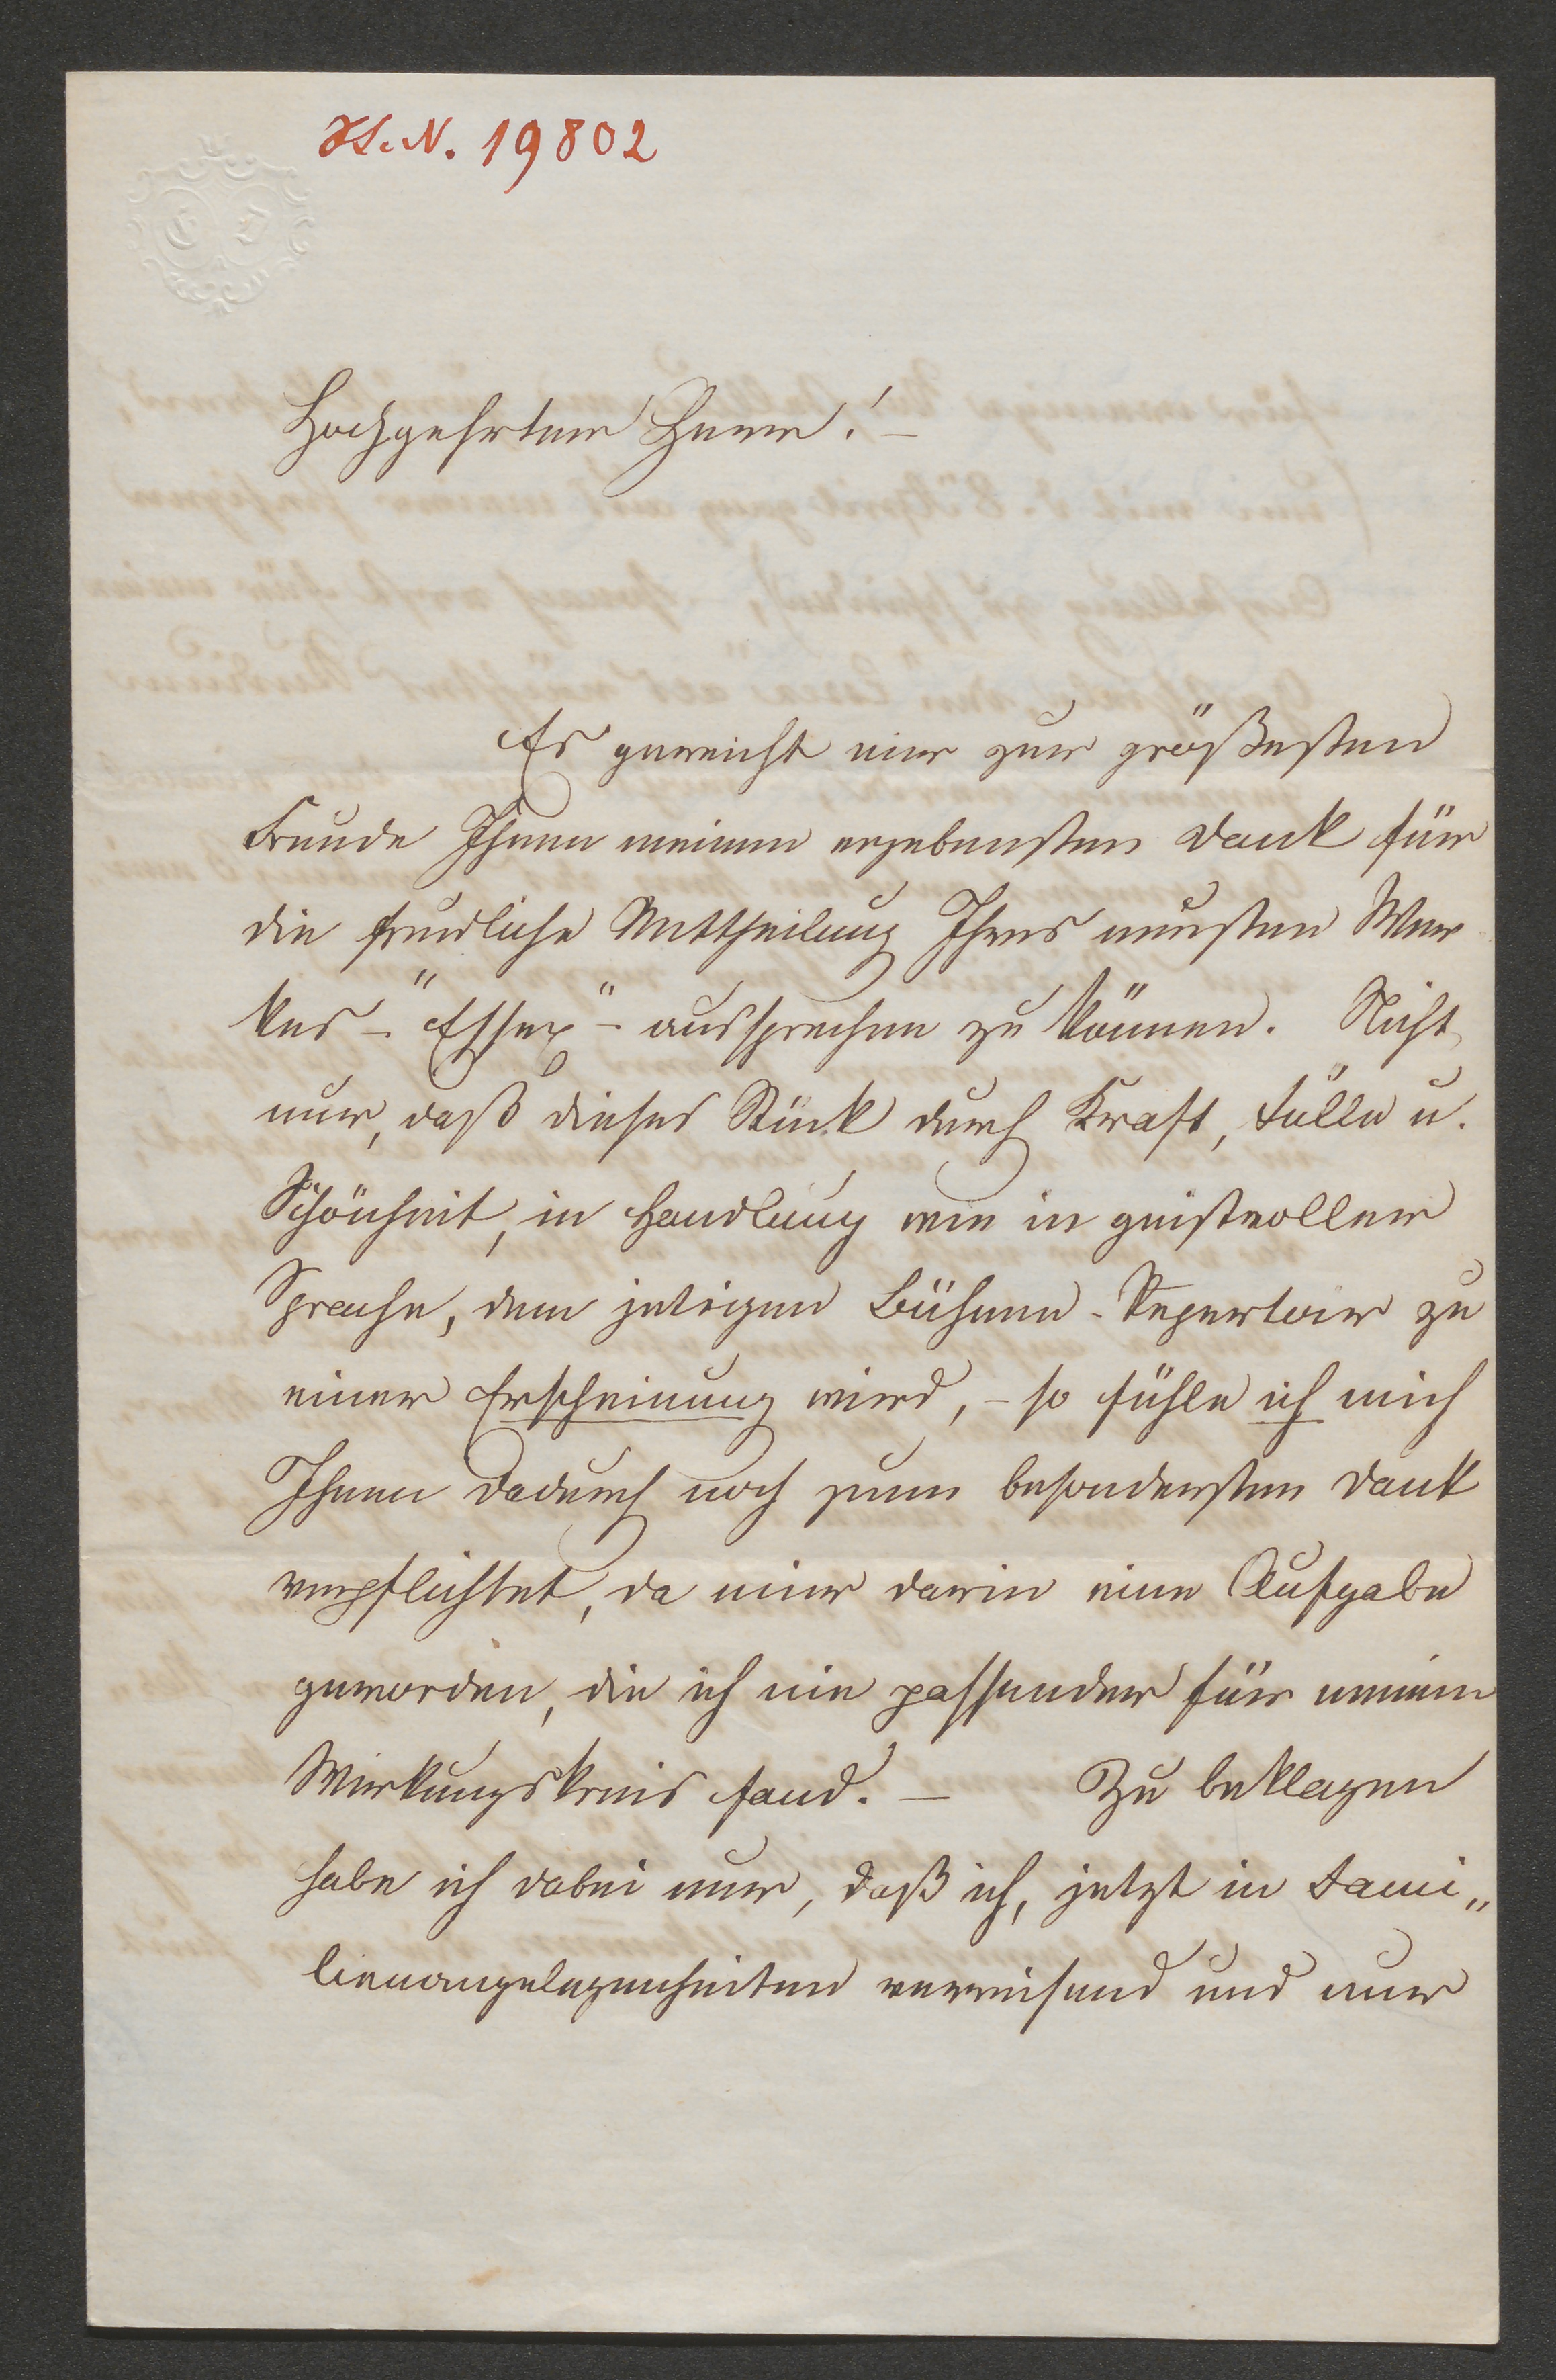 H.I.N. 19802
C I
Hochgehrter Herr! –
Es gereicht mir zur größesten
Freude Ihnen meinen ergebensten Dank für
die freundliche Mittheilung Ihres neusten Wer
kes – "Essex" – aussprechen zu können. Nicht
nur, daß dieses Stück durch Kraft, Fülle u.
Schönheit, in Handlung wie in geistvoller
Sprache, dem jetzigen Bühnen-Repertoir zu
einer Erscheinung wird, – so fühle ich mich
Ihnen dadurch noch zum besondersten Dank
verpflichtet, da mir darin eine Aufgabe
geworden, die ich nie passender für meinen
Wirkungskreis fand. – Zu beklagen
habe ich dabei nur, daß ich, jetzt in Fami„
lienangelegenheiten verreisend und nur